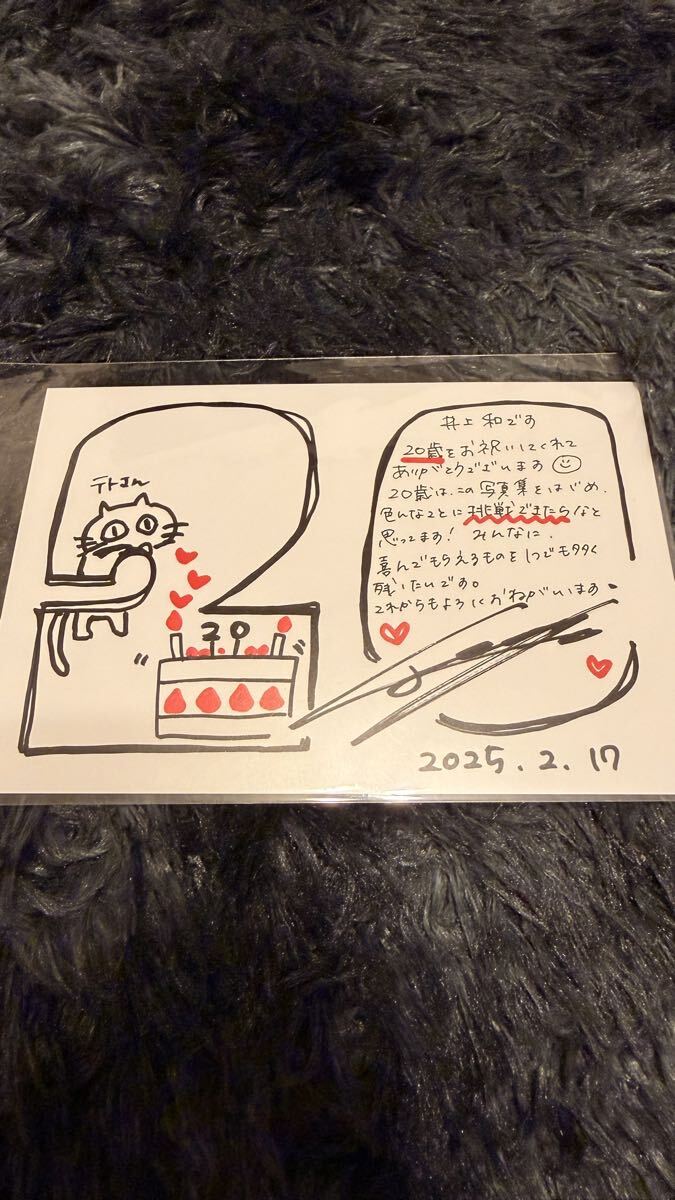 テトさん
20
井上 和です
20歳をお祝いしてくれて
ありがとうございます
20歳は、この写真集をはじめ、
色んなことに挑戦できたらなと
思ってます! みんなに、
喜んでもらえるものを1つでも多く
残したいです。
これからもよろしくおねがいします。
2025.2.17